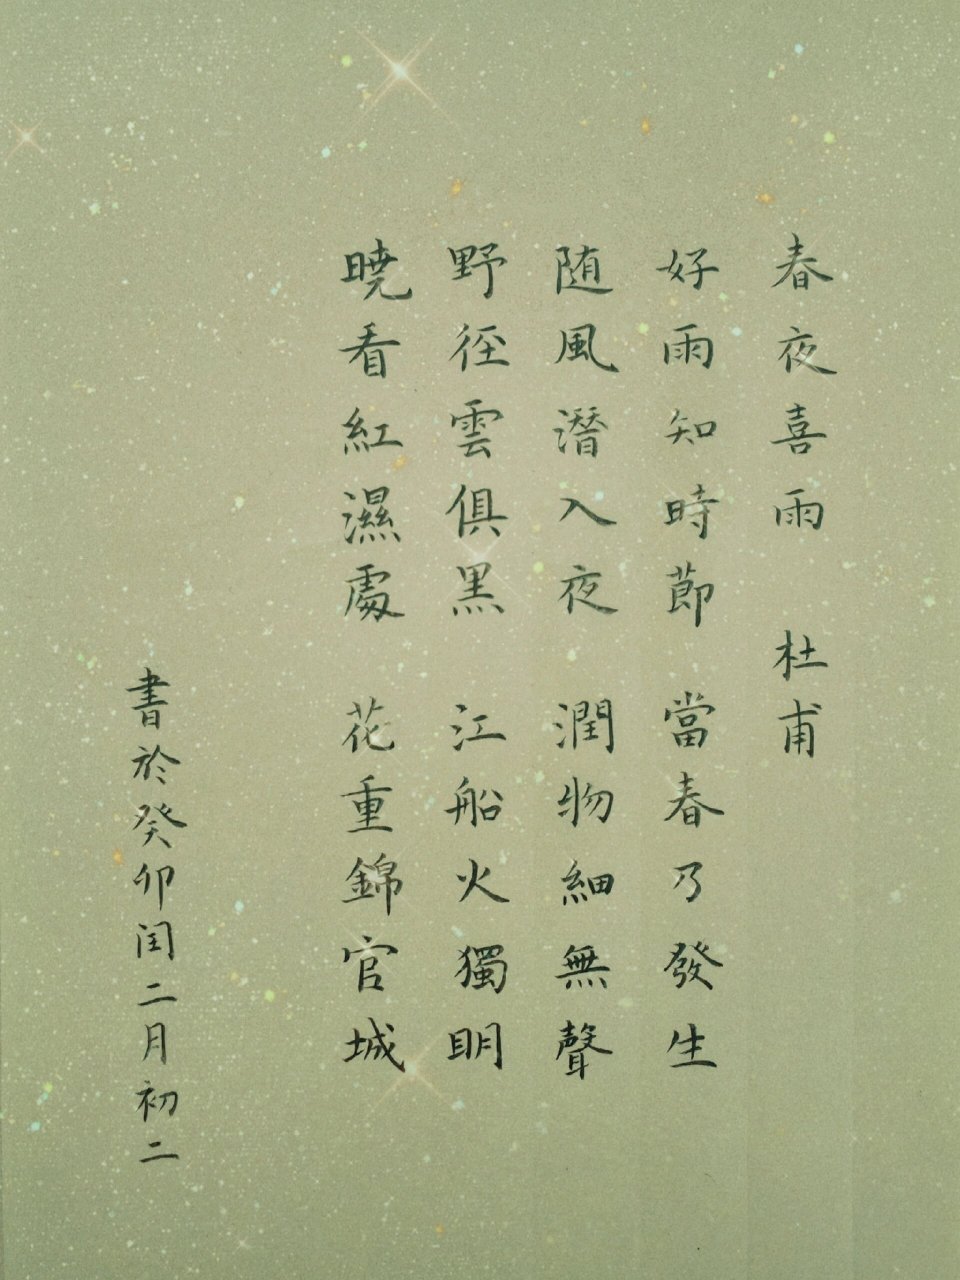 春夜喜雨 杜甫
好雨知時節 當春乃發生
随風潛入夜 潤物細無聲
野徑雲俱黑 江船火獨明
曉看紅濕處 花重錦官城
書於癸卯闰二月初二